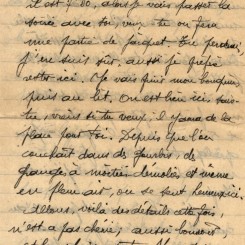 il est 7 30, alors je vais passer la
soirée avec son vieux te ou faire
une partie de jacquet. J'en perdrai,
j'en suis sûr, aussi je
reste ici. Je vais finir mon bouquin
puis au lit. On est bien ici, sais-
tu, viens si tu veux, il y aura de la
place pour toi. Depuis que l'on
couchait dans des gourbis, de
granges à moitié démolies et même
en plein air, on se sent heureux ici.
Allons, voilà des détails cette fois,
n'est-ce pas chérie, aussi bonsoir